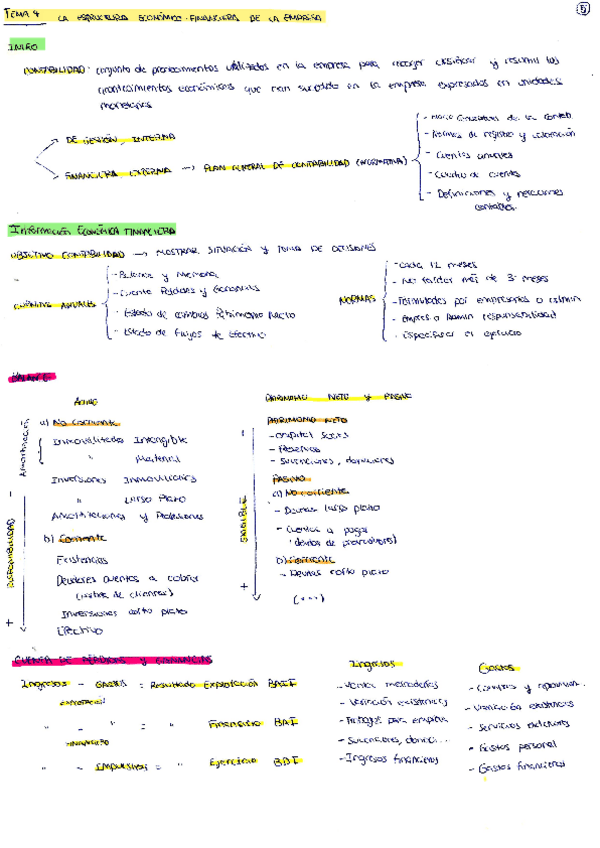 TEMA 4 LA ESTRUCTURA ECONÓMICO-FINANCIERA DE LA EMPRESA
5
INTRO
CONTABILIDAD: conjunto de procedimientos utilizados en la empresa para recoger clasificar y resumir los
acontecimientos económicos que han sucedido en la empresa expresados en unidades
monetarias
DE GESTIÓN, INTERNA
FINANCIERA, EXTERNA → PLAN GENERAL DE CONTABILIDAD (NORMATIVA)
- Marco Conceptual de la contab.
- Normas de registro y valoración
- Cuentas anuales
- Cuadro de cuentas
- Definiciones y relaciones
contables
Información ECONÓMICA FINANCIERA
OBJETIVO CONTABILIDAD → MOSTRAR SITUACIÓN y TOMA DE DECISIONES
CUENTAS ANUALES
- Balance y memoria
- Cuenta Pérdidas y Ganancias
- Estado de cambios Patrimonio Neto
- Estado de flujos de Efectivo
NORMAS
- Cada 12 meses
- No tardar más de 3 meses
- Formuladas por empresarios o admin
- Empres o Admin responsabilidad
- Especificar el ejercicio
BALANCE
ACTIVO
a) No Corriente
Inmovilizado Intangible
" Material
Inversiones Inmobiliarias
" Largo Plazo
Amortizaciones y
b) Corriente
Existencias
Deudores cuentas a cobrar
(deudas de clientes)
Inversiones corto plazo
Efectivo
- DISPONIBILIDAD +
PATRIMONIO NETO y PASIVO
PATRIMONIO NETO
- Capital Social
- Reservas
- Subvenciones, donaciones
PASIVO
a) No corriente
- Deudas largo plazo
- Cuentas a pagar
(deudas de proveedores)
b) Corriente
- Deudas corto plazo
(...)
EXIGIBLE +
CUENTA DE PÉRDIDAS y GANANCIAS
Ingresos - GASTOS = Resultado Explotación BAII
EXPLOTACIÓN
" - " = " Financiero BAI
FINANCIERO
" - IMPUESTOS = " Ejercicio BDI
Ingresos
- Ventas mercaderías
- Variación existencias
- Trabajos para empresa
- Subvenciones, donac...
- Ingresos financieros
Gastos
- Compras y
- Variación existencias
- Servicios exteriores
- Gastos personal
- Gastos financieros